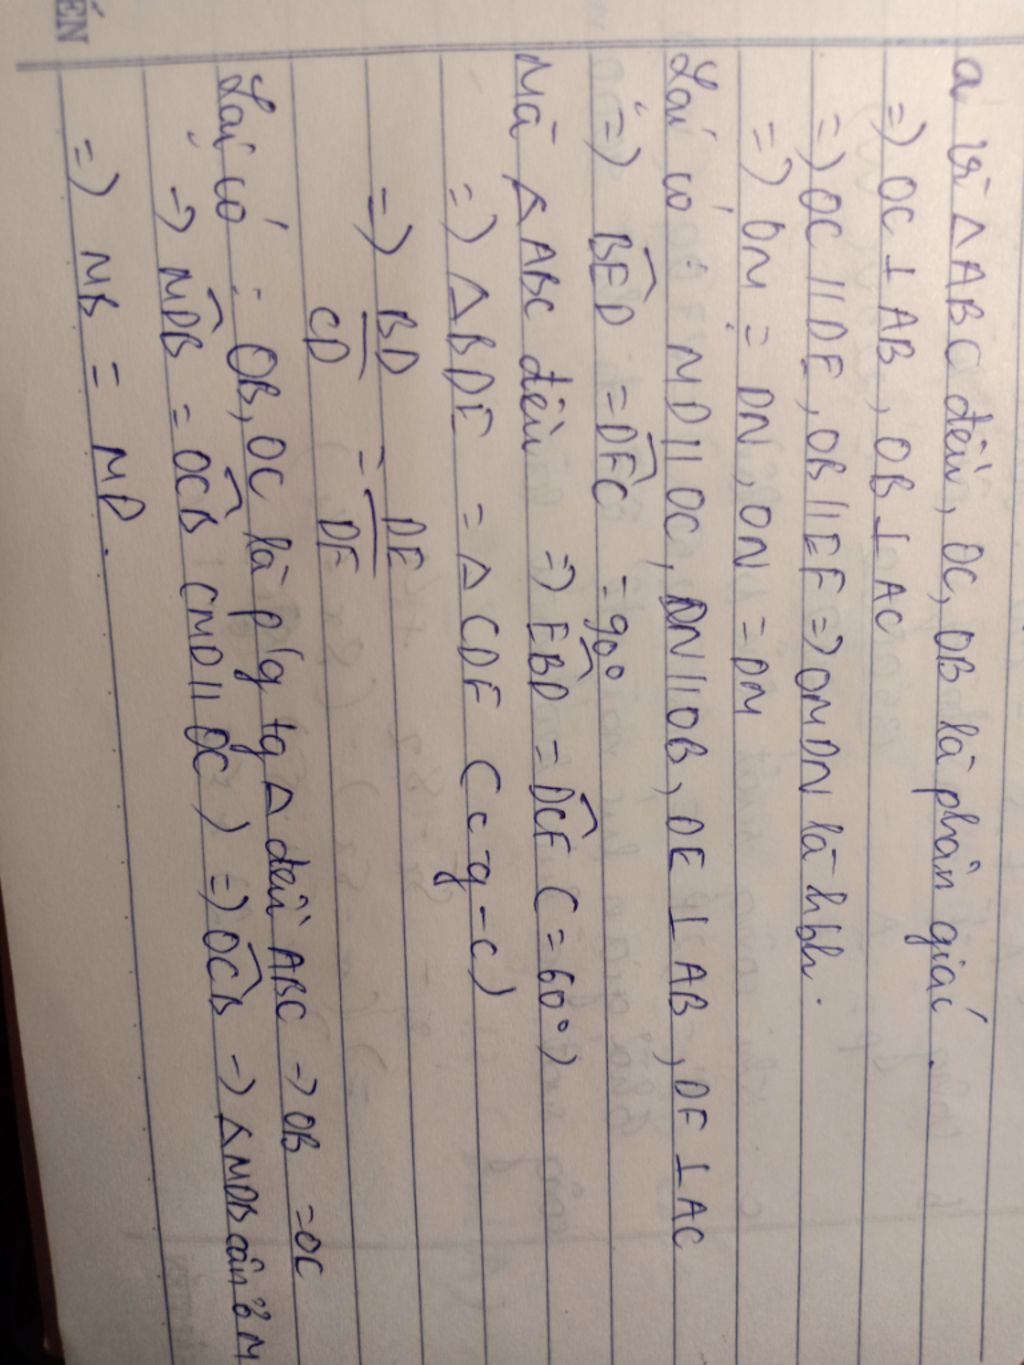 ẾN
a Vì △ABC đều, OC, OB là phân giác.
=) OC ⊥ AB, OB ⊥ AC
=) OC // DE, OB // EF =) OMDN là hbh.
=) OM = DN, ON = DM
Lại có: MD // OC, DN // OB, DE ⊥ AB, DF ⊥ AC
=) BÊD = DF̂C = 90°
Mà △ABC đều =) EB̂D = DĈF (= 60°)
=) △BDE = △CDF (c-g-c)
=) BD/CD = DE/DF
Lại có: OB, OC là p/g tg △ đều ABC → OB = OC
→ MD̂B = OĈB (MD // OC) =) OĈB → △MDB cân ở M
=) MB = MD.